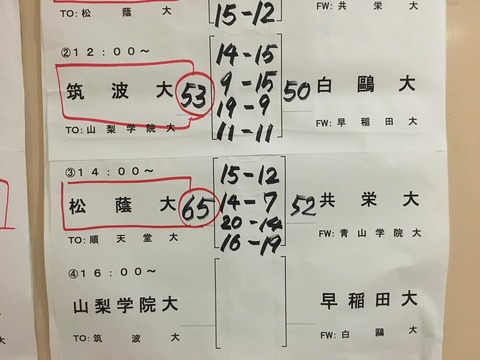 TO: 松 蔭 大
15-12
FW: 共 栄 大
②12：00～
筑 波 大
53
14-15
9-15
19-9
11-11
50
白 鷗 大
TO: 山 梨 学 院 大
FW: 早 稲 田 大
③14：00～
松 蔭 大
65
15-12
14-7
20-14
16-19
52
共 栄 大
TO: 順 天 堂 大
FW: 青 山 学 院 大
④16：00～
山梨学院大
早稲田大
TO: 筑 波 大
FW: 白 鷗 大